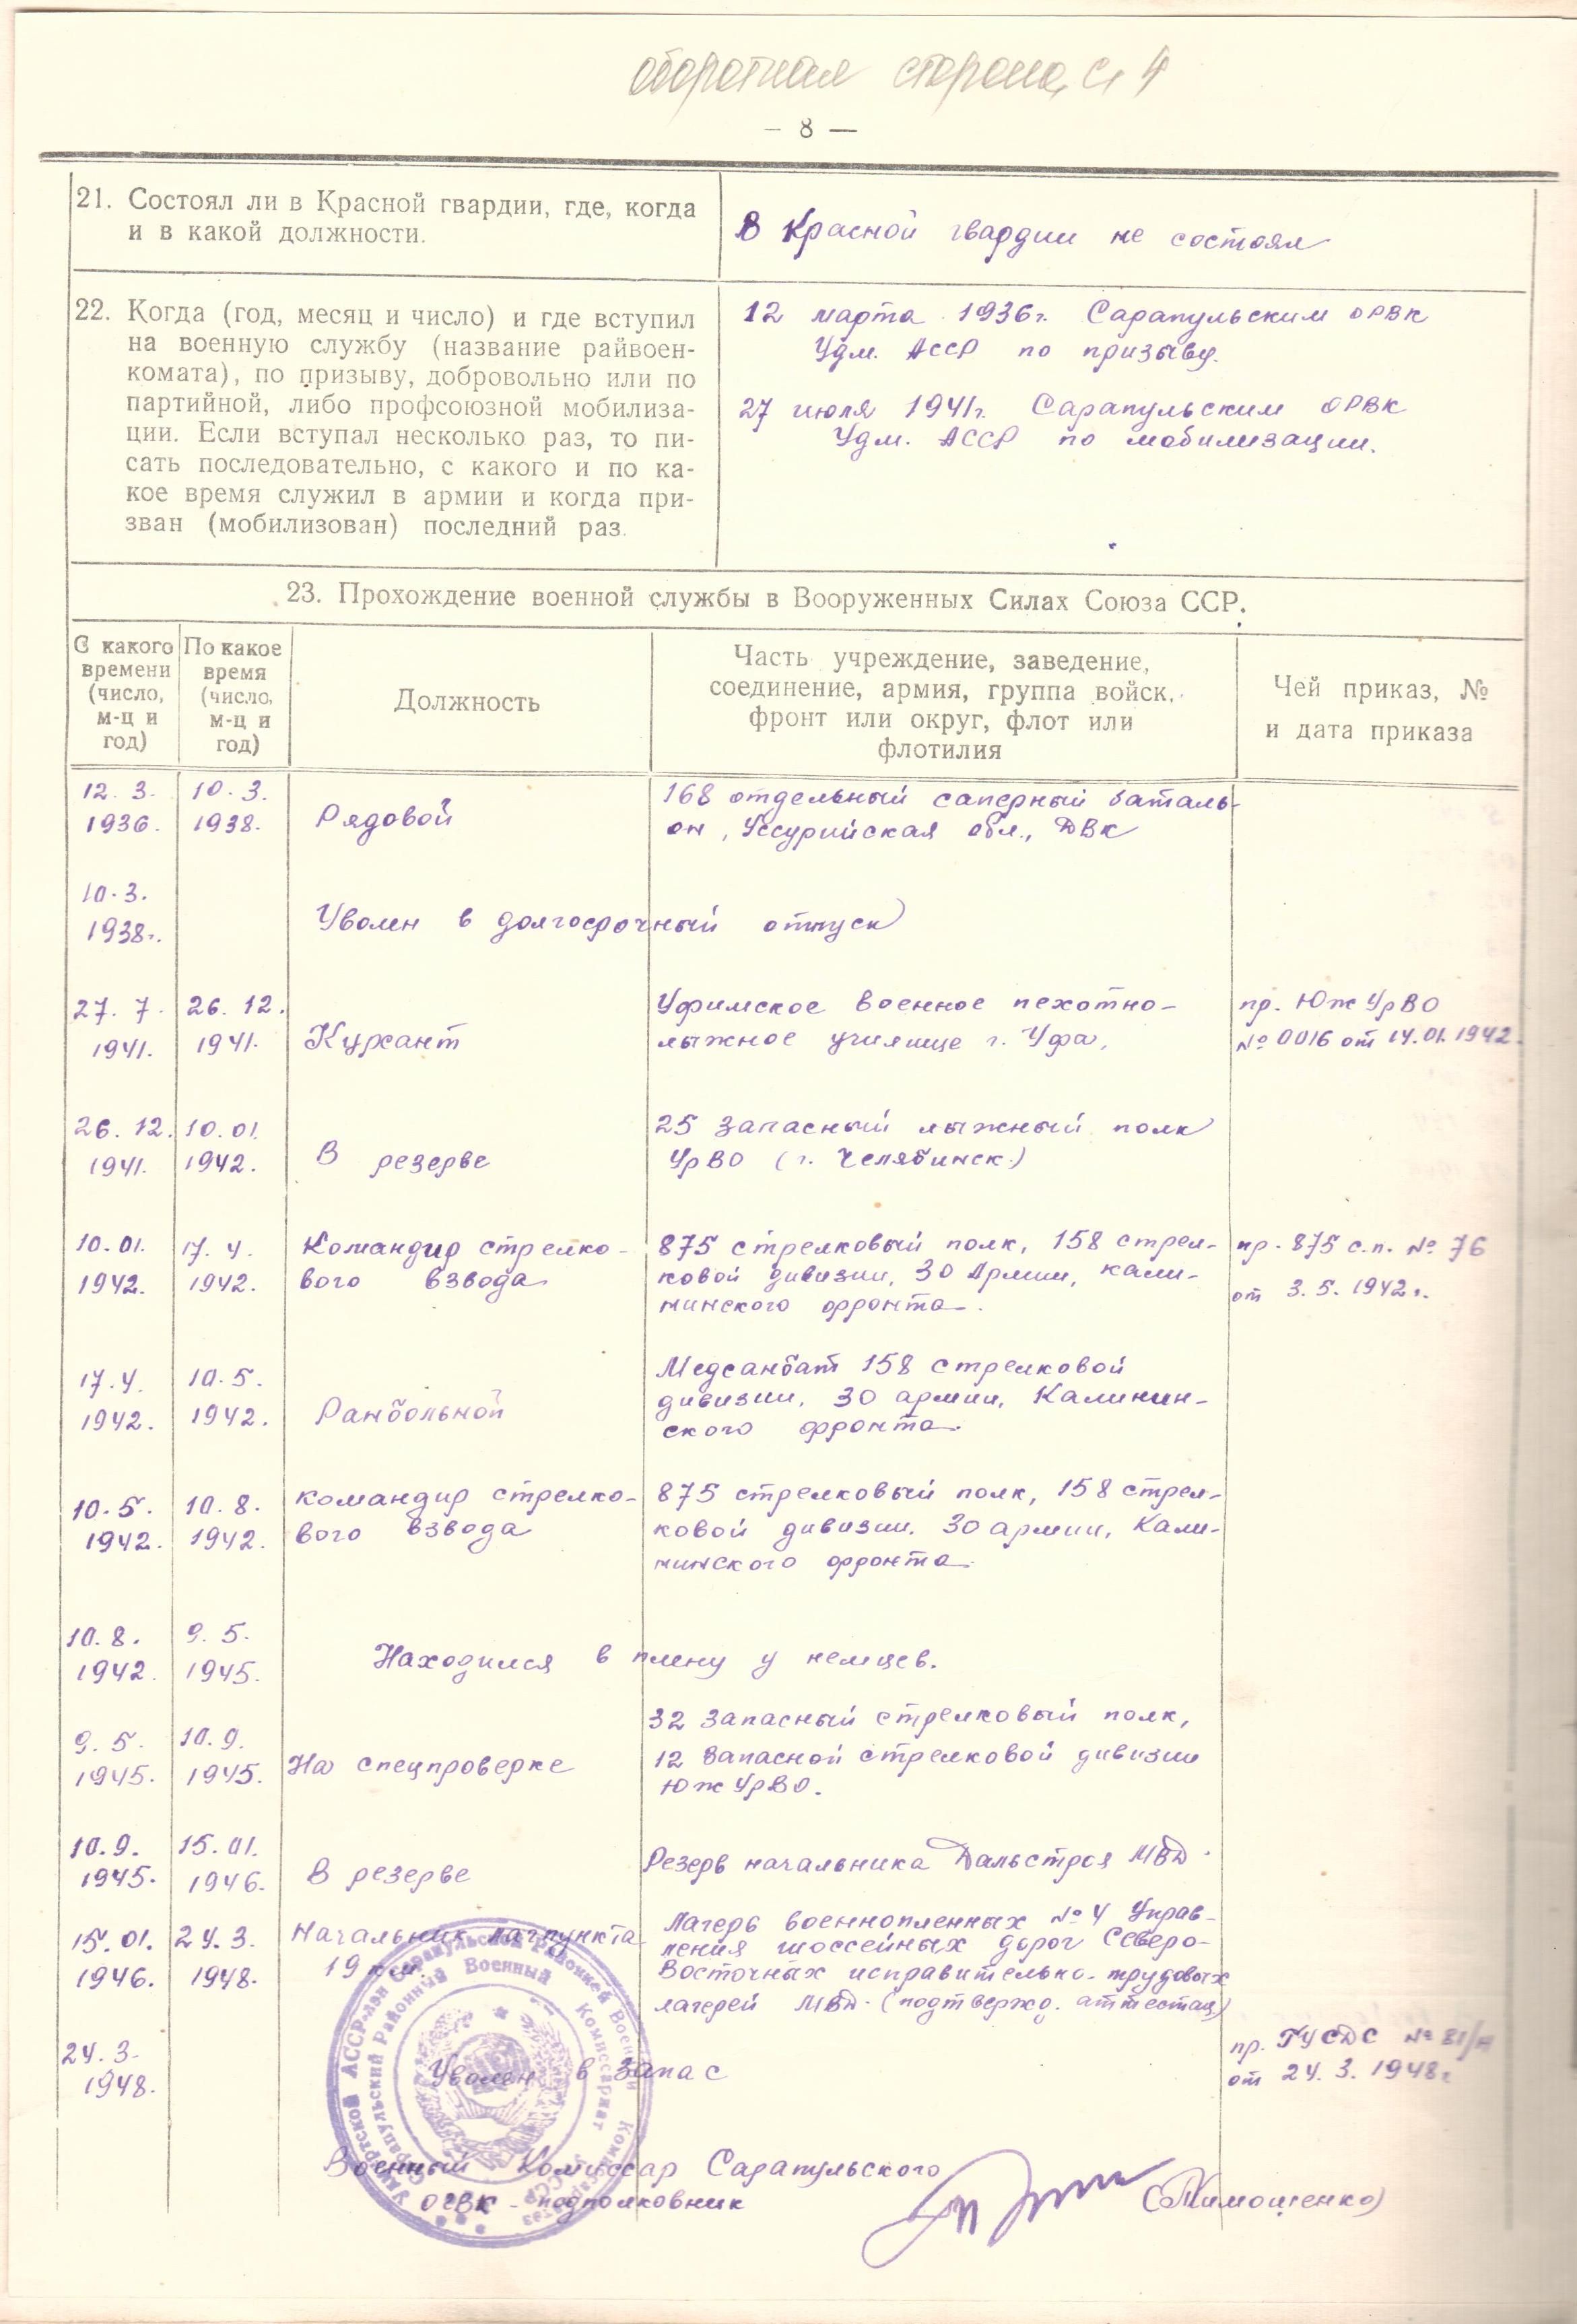 оборотная сторона, с. 4
— 8 —
21. Состоял ли в Красной гвардии, где, когда
и в какой должности.
В Красной гвардии не состоял
22. Когда (год, месяц и число) и где вступил
на военную службу (название райвоен-
комата), по призыву, добровольно или по
партийной, либо профсоюзной мобилиза-
ции. Если вступал несколько раз, то пи-
сать последовательно, с какого и по ка-
кое время служил в армии и когда при-
зван (мобилизован) последний раз.
12 марта 1936г. Сарапульским ОРВК
Удм. АССР по призыву.
27 июля 1941г. Сарапульским ОРВК
Удм. АССР по мобилизации.
23. Прохождение военной службы в Вооруженных Силах Союза ССР.
С какого времени (число, м-ц и год)
По какое время (число, м-ц и год)
Должность
Часть учреждение, заведение,
соединение, армия, группа войск,
фронт или округ, флот или
флотилия
Чей приказ, №
и дата приказа
12. 3. 10. 3. 168 отдельный саперный баталь-
1936. 1938. Рядовой он, Уссурийская обл., ДВК
10.3.
1938г. Уволен в долгосрочный отпуск
27. 7. 26. 12. Уфимское военное пехотно- пр. ЮжУрВО
1941. 1941. Курсант лыжное училище г. Уфа, № 0016 от 14.01.1942.
26. 12. 10.01. 25 запасный лыжный полк
1941. 1942. В резерве УрВО (г. Челябинск.)
10.01. 17. 4. Командир стрелко- 875 стрелковый полк, 158 стрел- пр. 875 с.п. № 76
1942. 1942. вого взвода ковой дивизии, 30 Армии, Кали- от 3. 5. 1942г.
нинского фронта.
17.4. 10.5. Медсанбат 158 стрелковой
1942. 1942. Ранбольной дивизии, 30 армии, Калинин-
ского фронта.
10.5. 10.8. командир стрелко- 875 стрелковый полк, 158 стрел-
1942. 1942. вого взвода ковой дивизии. 30 армии, Кали-
нинского фронта.
10.8. 9.5.
1942. 1945. Находился в плену у немцев.
32 запасный стрелковый полк,
9. 5. 10.9. 12 Запасной стрелковой дивизии
1945. 1945. На спецпроверке ЮжУрВО.
10.9. 15.01. Резерв начальника Дальстроя МВД.
1945. 1946. В резерве
15.01. 24.3. Начальник лагпункта Лагерь военнопленных № 4 Управ-
1946. 1948. 19 км. ления шоссейных дорог Северо-
Восточных исправительно-трудовых
лагерей МВД. (подтвержд. аттестац)
24.3. пр. ГУСДС № 81/н
1948. Уволен в запас от 24. 3. 1948г
Военный Комиссар Сарапульского
ОГВК - подполковник (Тимошенко)
Удмуртской АССР
Сарапульский Районный Военный Комиссариат